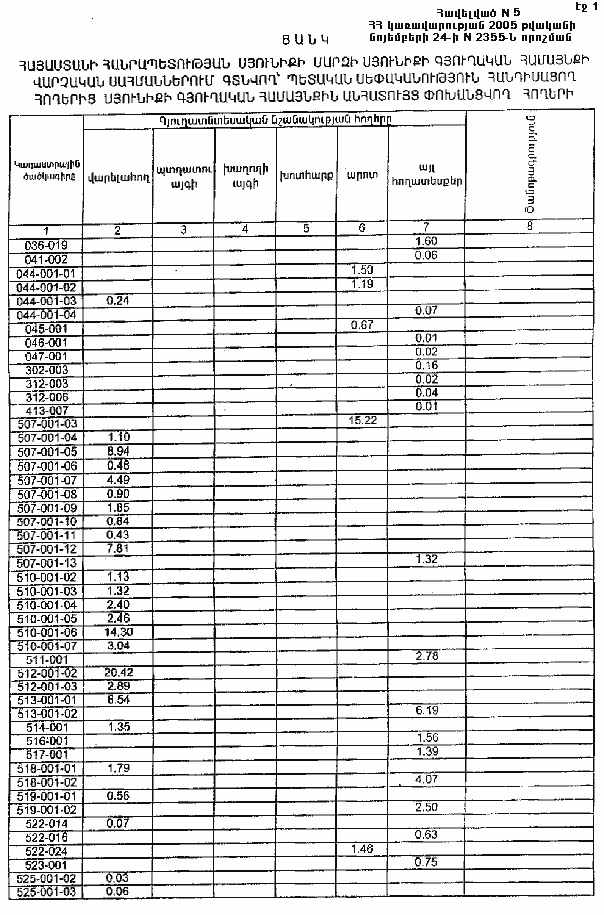 էջ 1
Հավելված N 5
ՀՀ կառավարության 2005 թվականի
նոյեմբերի 24-ի N 2355-Ն որոշման
ՑԱՆԿ
ՀԱՅԱՍՏԱՆԻ ՀԱՆՐԱՊԵՏՈՒԹՅԱՆ ՍՅՈՒՆԻՔԻ ՄԱՐԶԻ ՍՅՈՒՆԻՔԻ ԳՅՈՒՂԱԿԱՆ ՀԱՄԱՅՆՔԻ
ՎԱՐՉԱԿԱՆ ՍԱՀՄԱՆՆԵՐՈՒՄ ԳՏՆՎՈՂ՝ ՊԵՏԱԿԱՆ ՍԵՓԱԿԱՆՈՒԹՅՈՒՆ ՀԱՆԴԻՍԱՑՈՂ
ՀՈՂԵՐԻՑ ՍՅՈՒՆԻՔԻ ԳՅՈՒՂԱԿԱՆ ՀԱՄԱՅՆՔԻՆ ԱՆՀԱՏՈՒՅՑ ՓՈԽԱՆՑՎՈՂ ՀՈՂԵՐԻ
Գյուղատնտեսական նշանակության հողերը
Կադաստրային ծածկագիրը վարելահող պտղատու այգի խաղողի այգի խոտհարք արոտ այլ հողատեսքեր
1 2 3 4 5 6 7 8
036-019 1.60
041-002 0.06
044-001-01 1.50
044-001-02 1.19
044-001-03 0.24
044-001-04 0.07
045-001 0.67
046-001 0.01
047-001 0.02
302-003 0.16
312-003 0.02
312-006 0.04
413-007 0.01
507-001-03 15.22
507-001-04 1.10
507-001-05 8.94
507-001-06 0.48
507-001-07 4.49
507-001-08 0.90
507-001-09 1.85
507-001-10 0.84
507-001-11 0.43
507-001-12 7.81
507-001-13 1.32
510-001-02 1.13
510-001-03 1.32
510-001-04 2.40
510-001-05 2.46
510-001-06 14.30
510-001-07 3.04
511-001 2.78
512-001-02 20.42
512-001-03 2.89
513-001-01 6.54
513-001-02 6.19
514-001 1.35
516-001 1.56
517-001 1.39
518-001-01 1.79
518-001-02 4.07
519-001-01 0.56
519-001-02 2.50
522-014 0.07
522-016 0.63
522-024 1.46
523-001 0.75
525-001-02 0.03
525-001-03 0.06